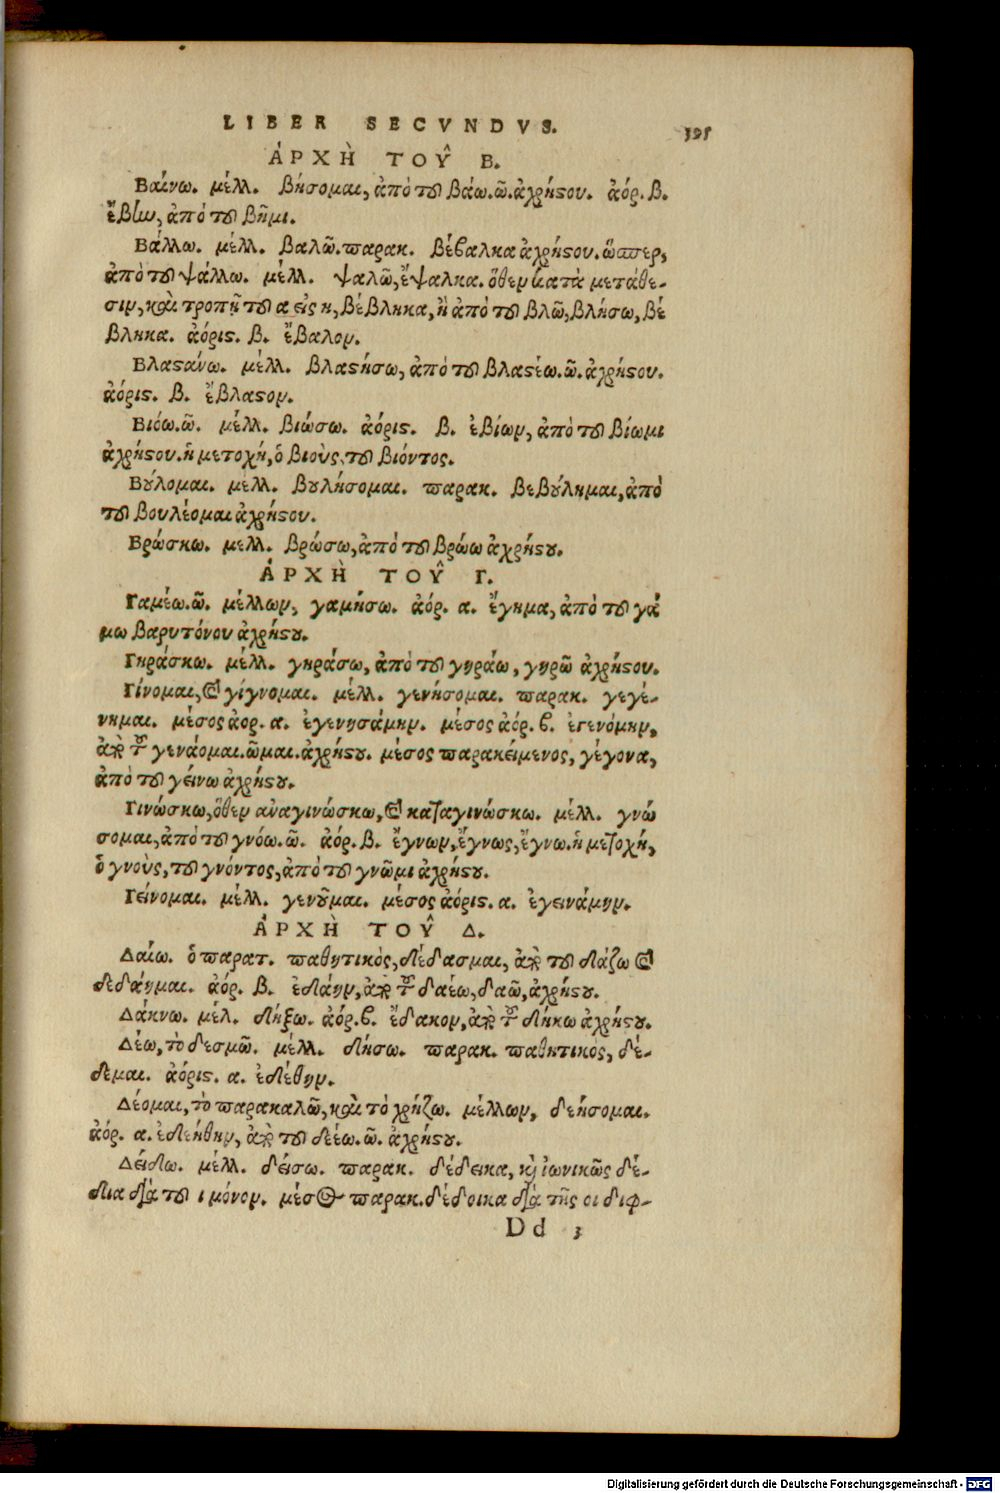 LIBER SECVNDVS. 395
ἈΡΧῊ ΤΟΥ͂ Β.
Βαίνω. μέλλ. βήσομαι, ἀπὸ τοῦ βάω.ῶ.ἀχρήστου. ἀόρ. β.
ἔβην, ἀπὸ τοῦ βῆμι.
Βάλλω. μέλλ. βαλῶ. παρακ. βέβαλκα ἀχρήστου. ὥσπερ,
ἀπὸ τοῦ ψάλλω. μέλλ. ψαλῶ, ἔψαλκα. ὅθεν κατὰ μετάθε-
σιν, καὶ τροπῇ τοῦ α εἰς η, βέβληκα, ἢ ἀπὸ τοῦ βλῶ, βλήσω, βέ
βληκα. ἀόριστ. β. ἔβαλον.
Βλαστάνω. μέλλ. βλαστήσω, ἀπὸ τοῦ βλαστέω.ῶ.ἀχρήστου.
ἀόριστ. β. ἔβλαστον.
Βιόω.ῶ. μέλλ. βιώσω. ἀόριστ. β. ἐβίων, ἀπὸ τοῦ βίωμι
ἀχρήστου. ἡ μετοχή, ὁ βιοὺς, τοῦ βιόντος.
Βούλομαι. μέλλ. βουλήσομαι. παρακ. βεβούλημαι, ἀπὸ
τοῦ βουλέομαι ἀχρήστου.
Βρώσκω. μέλλ. βρώσω, ἀπὸ τοῦ βρώω ἀχρήστου.
ἈΡΧῊ ΤΟΥ͂ Γ.
Γαμέω.ῶ. μέλλων, γαμήσω. ἀόρ. α. ἔγημα, ἀπὸ τοῦ γά
μω βαρυτόνου ἀχρήστου.
Γηράσκω. μέλλ. γηράσω, ἀπὸ τοῦ γηράω, γηρῶ ἀχρήστου.
Γίνομαι, καὶ γίγνομαι. μέλλ. γενήσομαι. παρακ. γεγέ-
νημαι. μέσος ἀορ. α. ἐγενησάμην. μέσος ἀόρ. β. ἐγενόμην,
ἀπὸ τοῦ γενάομαι.ῶμαι.ἀχρήστου. μέσος παρακείμενος, γέγονα,
ἀπὸ τοῦ γείνω ἀχρήστου.
Γινώσκω, ὅθεν ἀναγινώσκω, καὶ καταγινώσκω. μέλλ. γνώ
σομαι, ἀπὸ τοῦ γνόω.ῶ. ἀόρ. β. ἔγνων, ἔγνως, ἔγνω. ἡ μετοχή,
ὁ γνοὺς, τοῦ γνόντος, ἀπὸ τοῦ γνῶμι ἀχρήστου.
Γείνομαι. μέλλ. γενοῦμαι. μέσος ἀόριστ. α. ἐγεινάμην.
ἈΡΧῊ ΤΟΥ͂ Δ.
Δαίω. ὁ παρατ. παθητικὸς, δέδασμαι, ἀπὸ τοῦ δάζω καὶ
δεδάημαι. ἀόρ. β. ἐδάην, ἀπὸ τοῦ δαέω, δαῶ, ἀχρήστου.
Δάκνω. μέλ. δήξω. ἀόρ. β. ἔδακον, ἀπὸ τοῦ δήκω ἀχρήστου.
Δέω, τὸ δεσμῶ. μέλλ. δήσω. παρακ. παθητικὸς, δέ-
δεμαι. ἀόριστ. α. ἐδέθην.
Δέομαι, τὸ παρακαλῶ, καὶ τὸ χρήζω. μέλλων, δεήσομαι.
ἀόρ. α. ἐδεήθην, ἀπὸ τοῦ δεέω.ῶ. ἀχρήστου.
Δείδω. μέλλ. δείσω. παρακ. δέδεικα, καὶ ἰωνικῶς δέ-
δια διὰ τοῦ ι μόνον. μέσος παρακ. δέδοικα διὰ τῆς οι διφ-
Dd 3
Digitalisierung gefördert durch die Deutsche Forschungsgemeinschaft - DFG